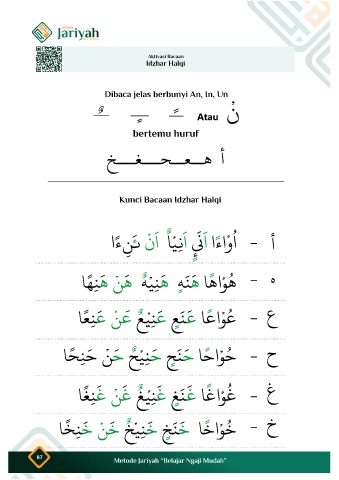 Metode
Jariyah
Aktivasi Bacaan
Idzhar Halqi
Dibaca jelas berbunyi An, In, Un
ـًـ ـٍـ ـٌـ Atau نْ
bertemu huruf
أ هـعـحـغـخ
Kunci Bacaan Idzhar Halqi
أ - اُوْاءًا اَنَىٍٕ اَنِيْاٌ اَنْ ىَٔنِءًا
ه - هُوْاهًا هَنَهٍ هَنِيْهٌ هَنْ هَنِهًا
ع - عُوْاعًا عَنَعٍ عَنِيْعٌ عَنْ عَنِعًا
ح - حُوْاحًا حَنَحٍ حَنِيْحٌ حَنْ حَنِحًا
غ - غُوْاغًا غَنَغٍ غَنِيْغٌ غَنْ غَنِغًا
خ - خُوْاخًا خَنَخٍ خَنِيْخٌ خَنْ خَنِخًا
07 Metode Jariyah "Belajar Ngaji Mudah"